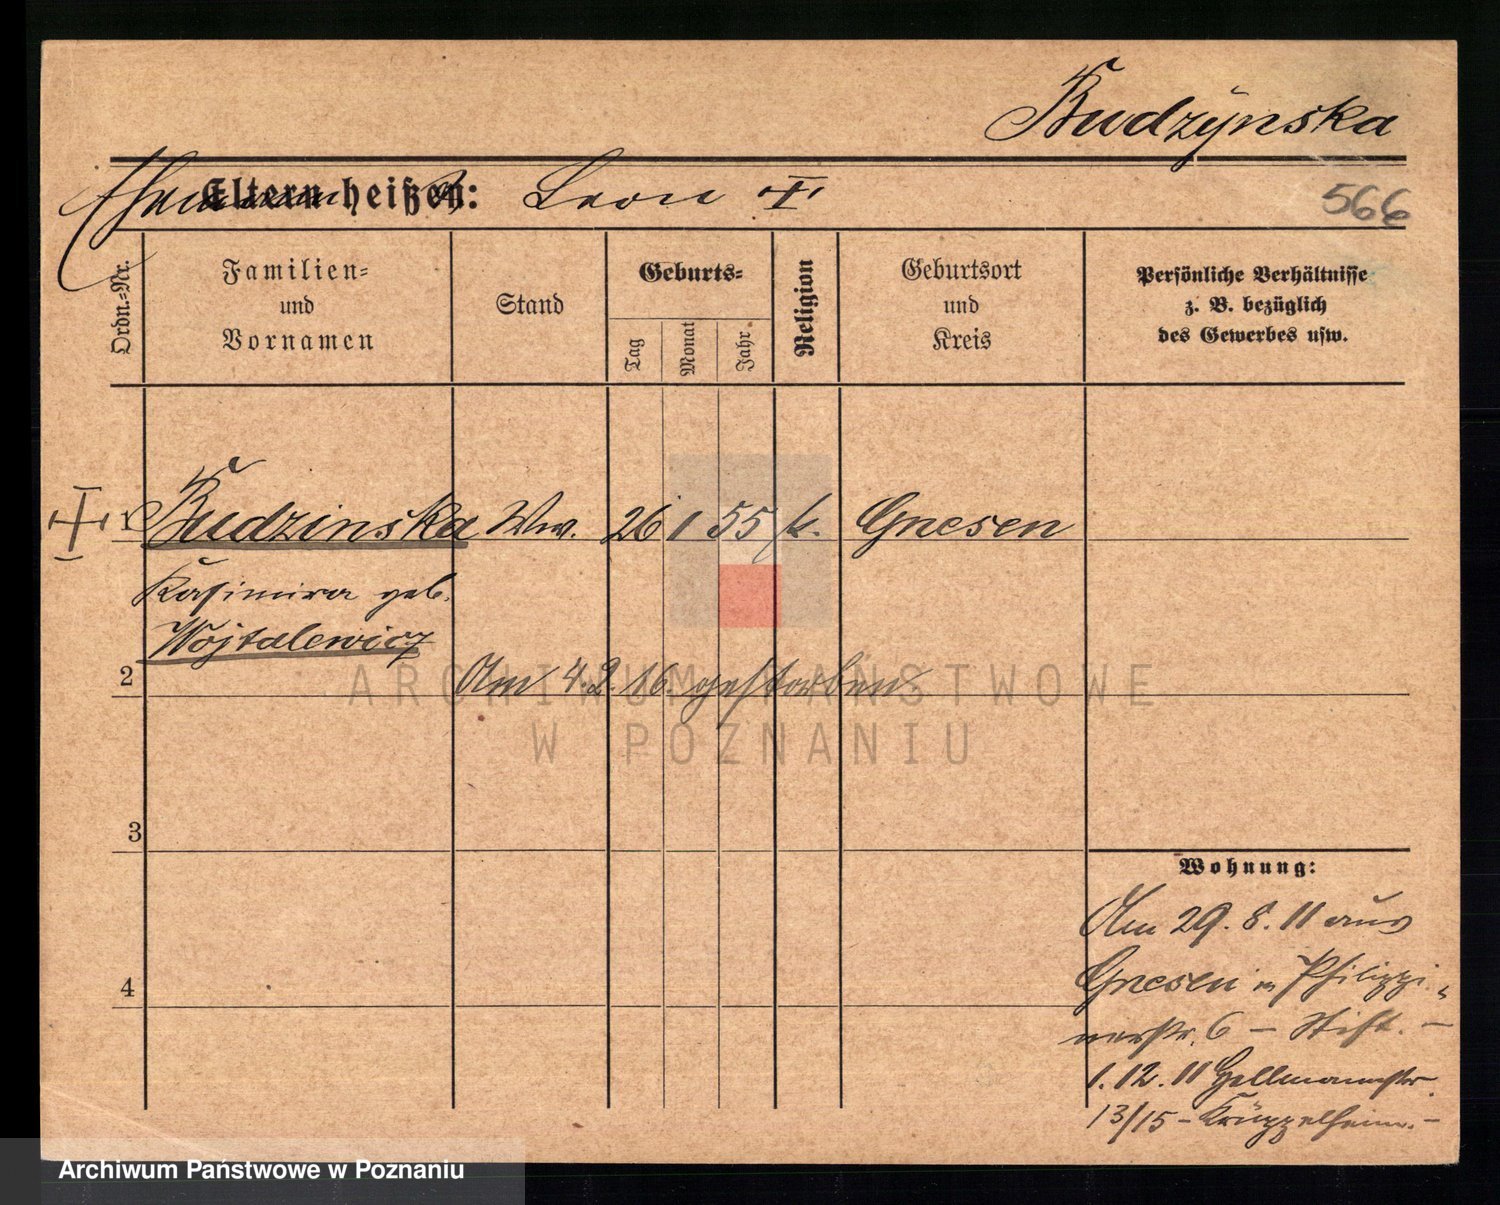 Budzynska
Eltern heißen: Leon
566
Ordn.=Nr.
Familien=
und
Vornamen
Stand
Geburts=
Tag
Monat
Jahr.
Religion
Geburtsort
und
Kreis
Persönliche Verhältnisse
z. B. bezüglich
des Gewerbes usw.
1 Budzinska Ww. 26 1 55 k. Gnesen
Kasimira geb.
Wojtalewicz
2
Am 4.2.16. gestorben
ARCHIWUM PAŃSTWOWE
W POZNANIU
3
Wohnung:
Am 29.8.11 aus
Gnesen in Philippi=
nerstr. 6 – Stift. –
4
1.12.11 Hellmannstr.
13/15 – Krüppelheim. –
Archiwum Państwowe w Poznaniu